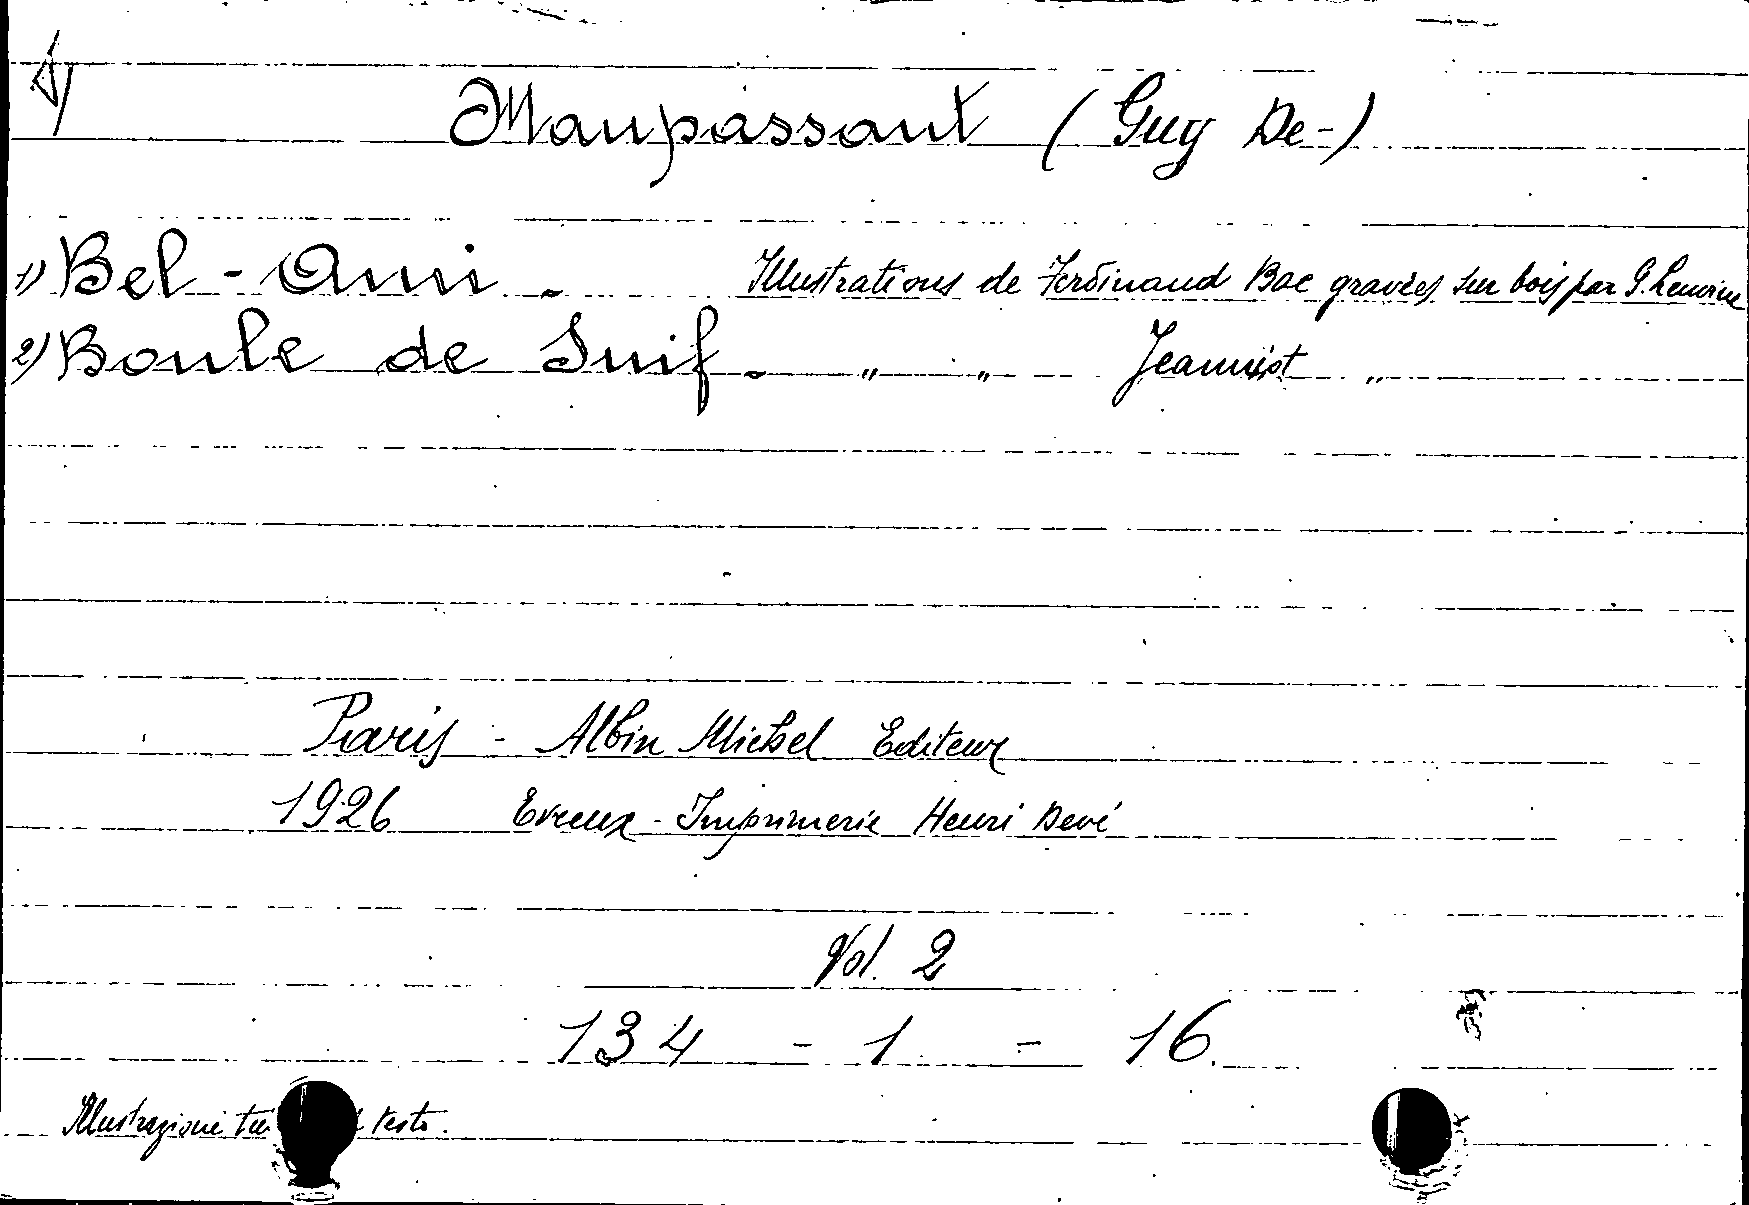 Maupassant (Guy De-)
1) Bel-Ami. Illustrations de Ferdinand Bac gravées sur bois par G. Lemoine
2) Boule de Suif. " " Jeanniot "
Paris - Albin Michel Editeur
1926 Evreux - Imprimerie Henri Devé
Vol. 2
134 - 1 - 16.
Illustrazioni testo.